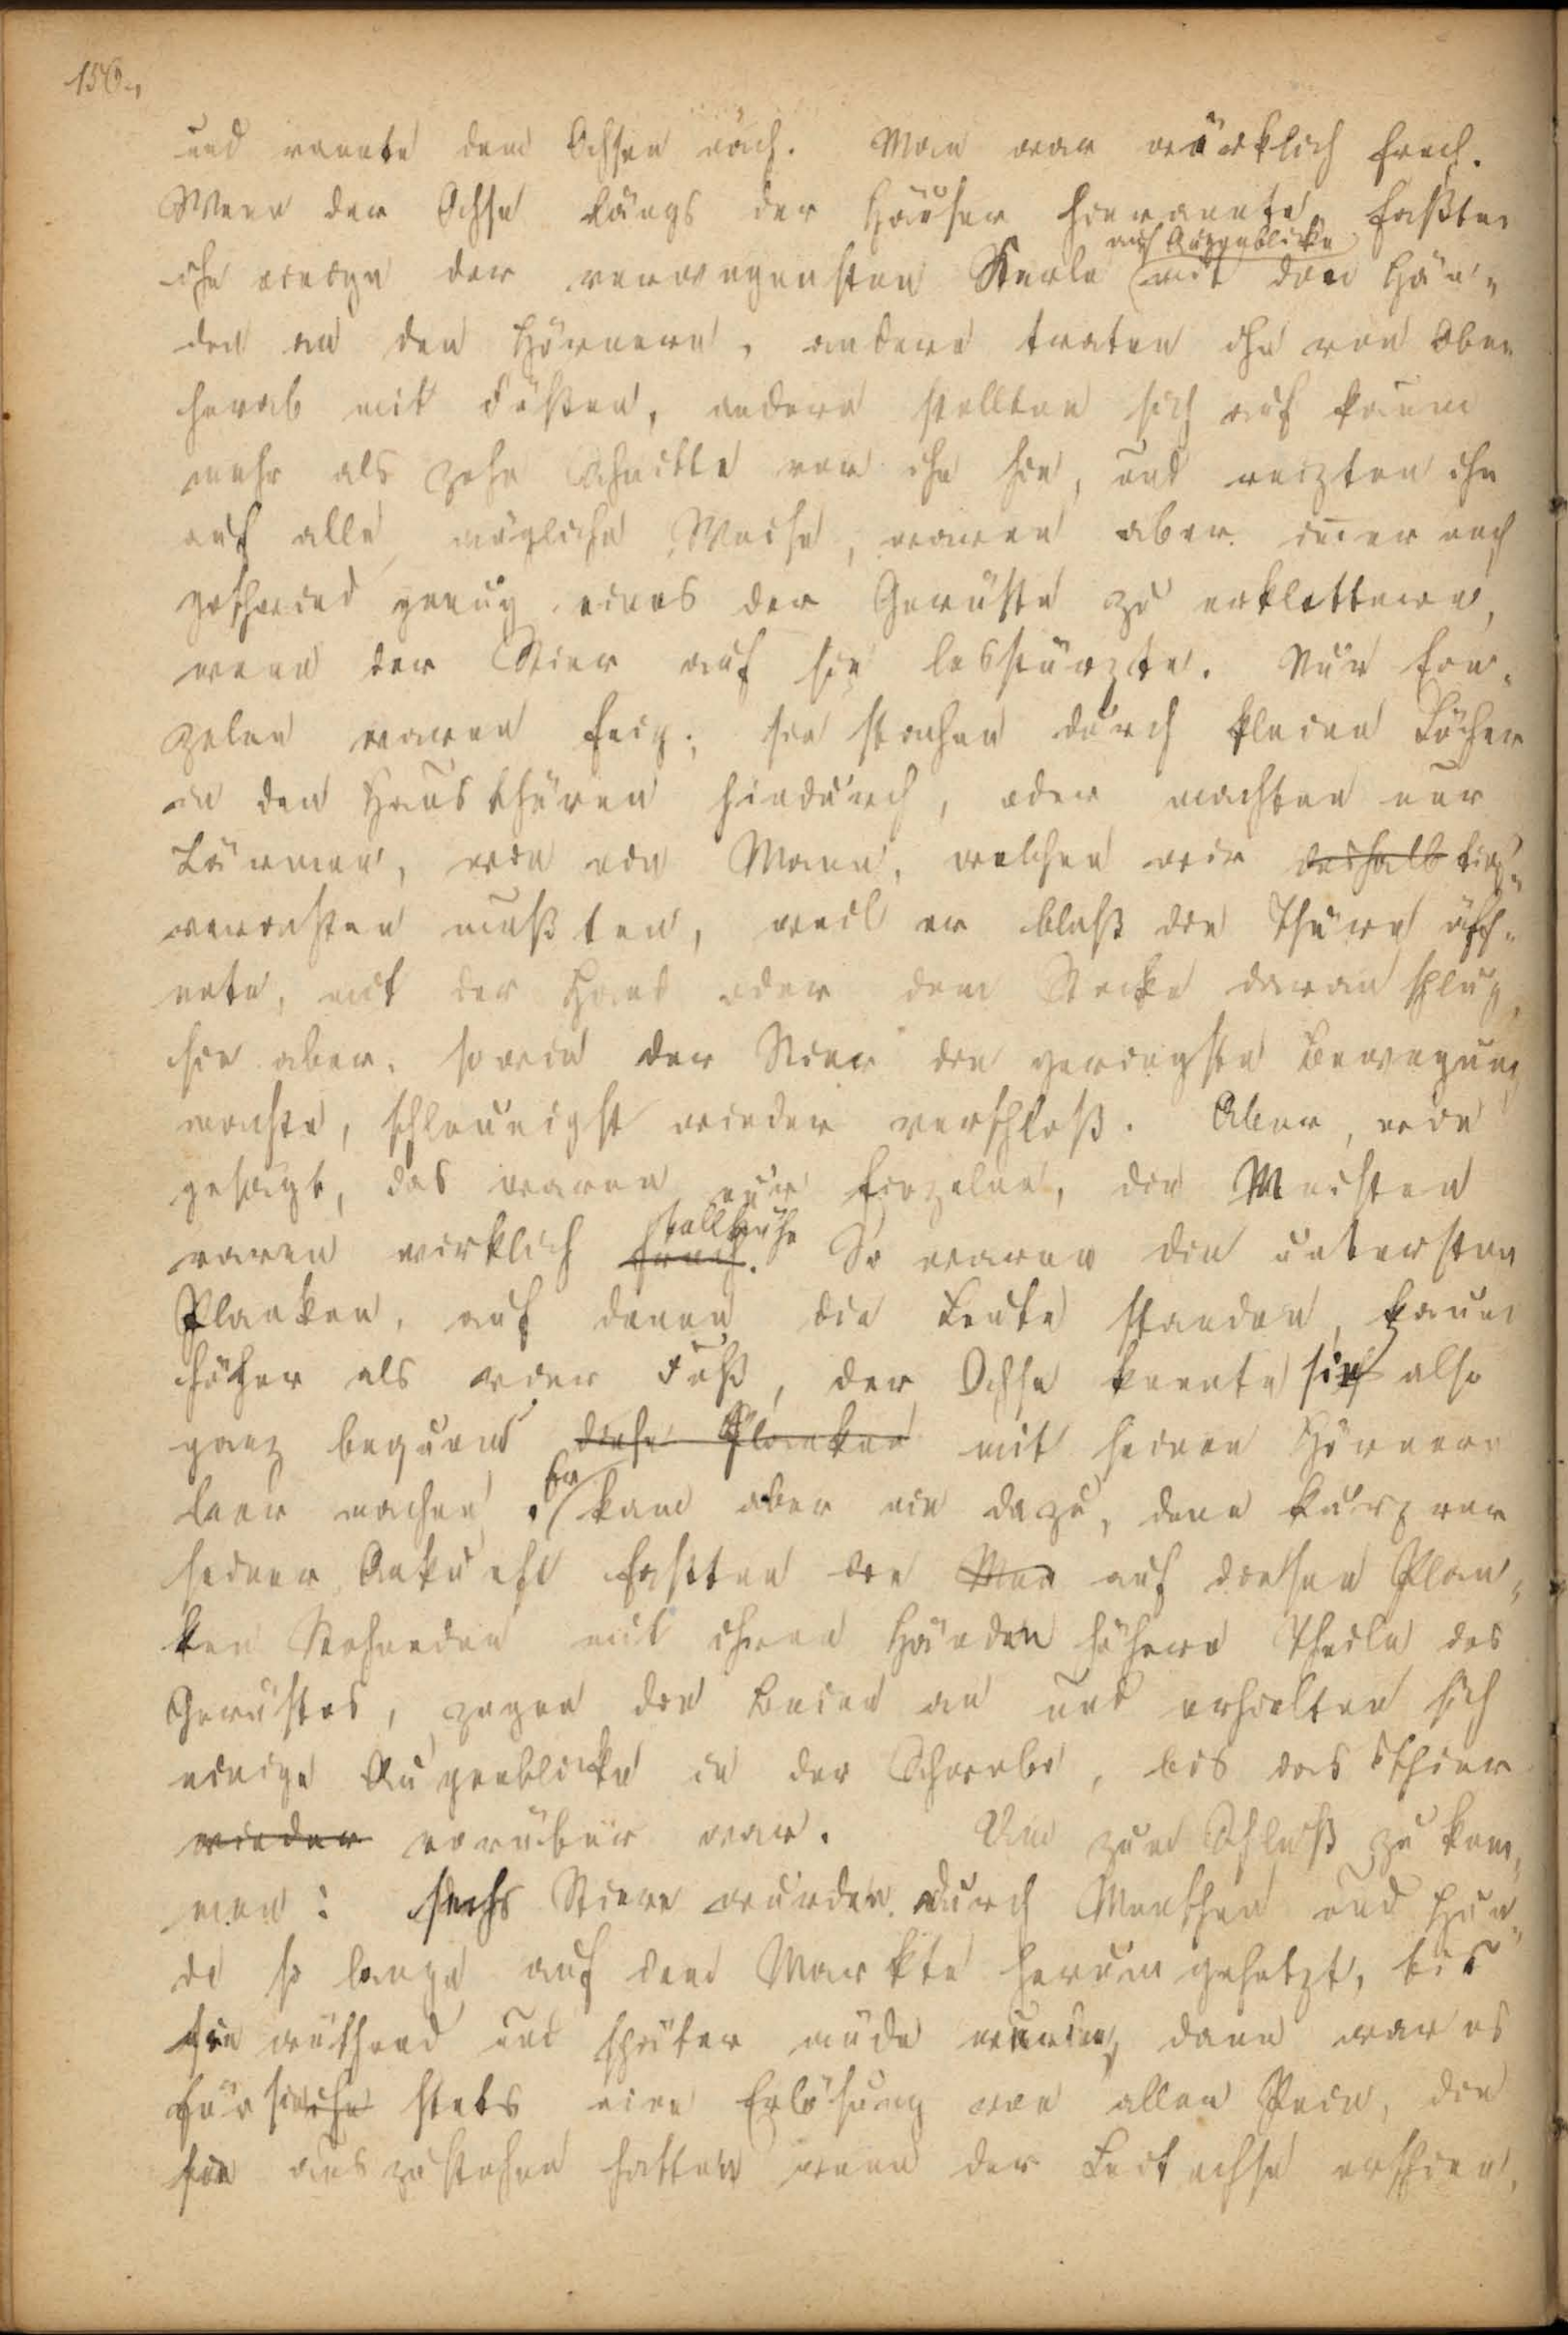 156.,
und rannte dem Ochsen nach. Man war wirklich frech.
Wenn der Ochse längs der Häuser hinrannte, faßten
auf Augenblicke
ihn einige der verwegensten Kerle mit den Hän„
den an den Hörnern, andere traten ihn von Oben
herab mit Füßen, andere stellten sich auf kaum
mehr als zehn Schritte vor ihn hin, und reizten ihn
auf alle mögliche Weise, waren aber immer noch
geschwind genug eines der Gerüste zu erklettern,
wenn der Stier auf sie losstürzte. Nur Ein„
zelne waren feig; sie stachen durch kleine Löcher
in den Hausthüren hindurch, oder machten nur
Lärmen, wie ein Mann, welchen wir deshalb
verachten mußten, weil er bloß die Thüre öff„
nete, mit der Hand oder dem Stocke daran schlug,
sie aber, sowie der Stier die geringste Bewegung
machte, schleunigst wieder verschloß. Aber, wie
gesagt, das waren nur Einzelne, die Meisten
tollkühn
waren wirklich frech. So waren die untersten
Planken, auf denen die Leute standen, kaum
höher als vier Fuß, der Ochse konnte sie also
ganz bequem diese Planken mit seinen Hörnern
Er
leer machen. kam aber nie dazu, denn kurz vor
seiner Ankunft faßten die Men auf diesen Plan„
ken Stehenden mit ihren Händen höhere Theile des
Gerüstes, zogen die Beine an und erhielten sich
einige Augenblicke in der Schwebe, bis das Thier
wieder vorüber war. Um zum Schluß zu kom„
men: sechs Stiere wurden durch Menschen und Hun„
de so lange auf dem Markte herum gehetzt, bis
sie wüthend und später müde wurden, dann war es
für sie ihn stets eine Erlösung von allen Pein, die
sie auszustehen hatten wenn der Leitochse erschien,